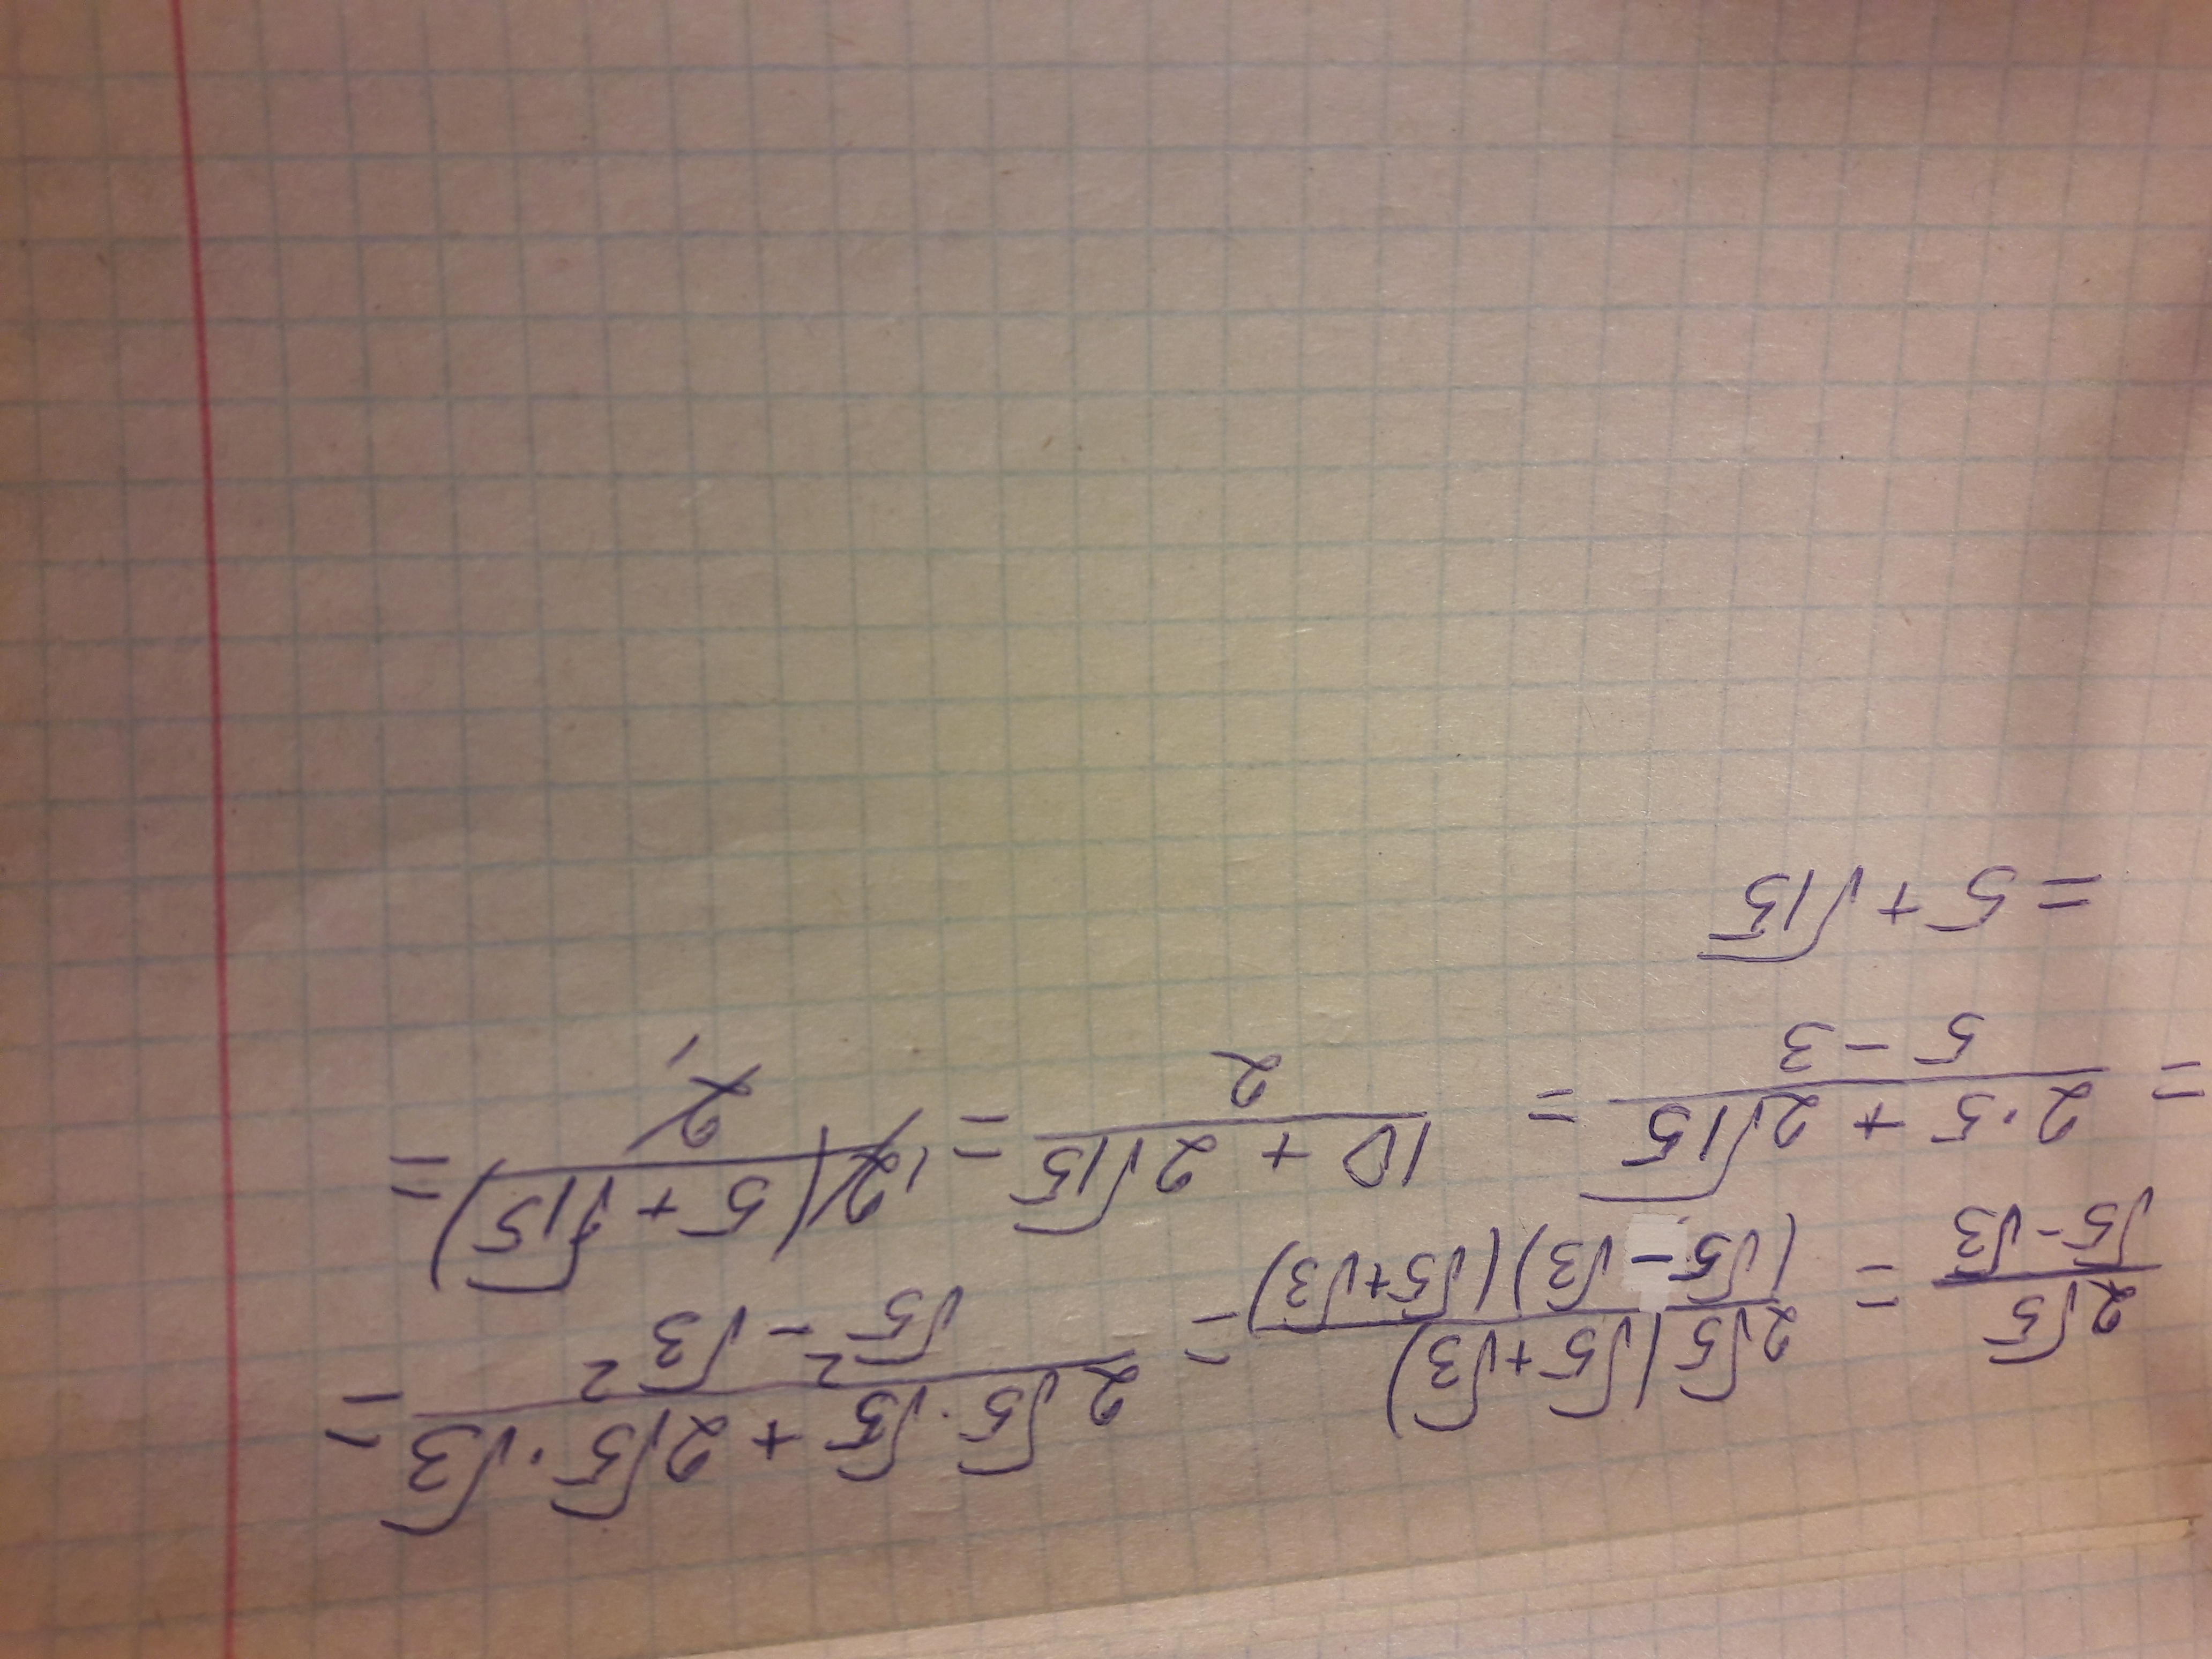 2√5/(√5-√3) = 2√5(√5+√3)/((√5-√3)(√5+√3)) = (2√5·√5+2√5·√3)/(√5²-√3²) =
= (2·5+2√15)/(5-3) = (10+2√15)/2 = 2¹(5+√15)/2₁ =
= 5+√15